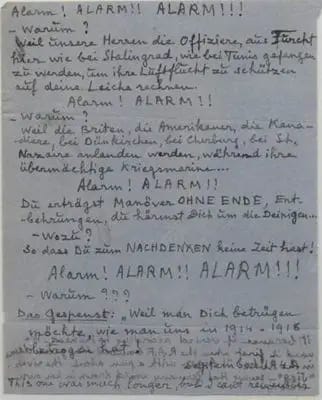 Alarm! ALARM!! ALARM!!!
– Warum?
Weil unsere Herren die Offiziere, aus Furcht
hier wie bei Stalingrad, wie bei Tunis gefangen
zu werden, um ihre Luftflucht zu schützen
auf deine Leiche rechnen.
Alarm! ALARM!!
– Warum?
Weil die Briten, die Amerikaner, die Kana-
diere, bei Dünkirchen, bei Cherburg, bei St.
Nazaire anlanden werden, während ihre
übermächtige Kriegsmarine....
Alarm! ALARM!!
Du erträgst Manöver OHNE ENDE, Ent-
behrungen, du härmst Dich um die Deinigen...
– Wozu?
So dass Du zum NACHDENKEN keine Zeit hast!
Alarm! ALARM!! ALARM!!!
– Warum???
Das Gespenst: „Weil man Dich betrügen
möchte, wie man uns in 1914-1918
betrogen hat.
September 1943
This one was much longer, but I can't remember